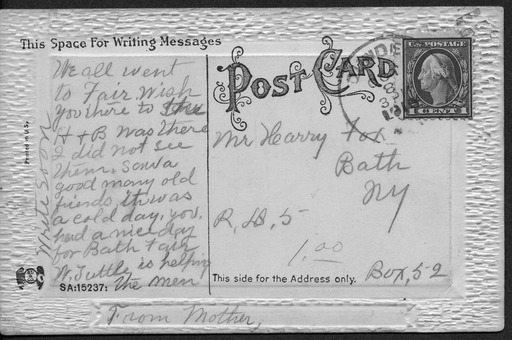 This Space For Writing Messages
POST CARD
We all went
to Fair, Wish
you there to
H + B was there
I did not see
them. saw a
good many old
friends, it was
a cold day, you
had a nice day
for Bath Fair
W. Tuttle is helping
the men
Write Soon
Mr Harry Fox
Bath
NY
R, D, 5
1.00
Box, 52
This side for the Address only.
SA:15237:
From Mother,
U.S. POSTAGE